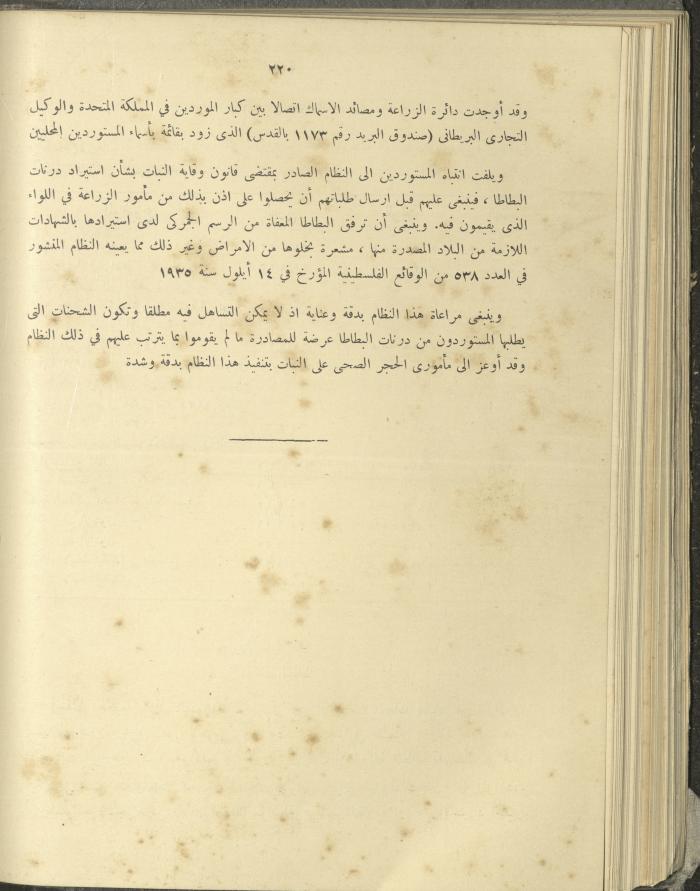 ٢٢٠
وقد أوجدت دائرة الزراعة ومصائد الاسماك اتصالا بين كبار الموردين في المملكة المتحدة والوكيل
التجارى البريطانى (صندوق البريد رقم ١١٧٣ بالقدس) الذى زود بقائمة بأسماء المستوردين المحليين
ويلفت انتباه المستوردين الى النظام الصادر بمقتضى قانون وقاية النبات بشأن استيراد درنات
البطاطا ، فينبغى عليهم قبل ارسال طلباتهم أن يحصلوا على اذن بذلك من مأمور الزراعة في اللواء
الذى يقيمون فيه. وينبغى أن ترفق البطاطا المعفاة من الرسم الجمركى لدى استيرادها بالشهادات
اللازمة من البلاد المصدرة منها ، مشعرة بخلوها من الامراض وغير ذلك مما يعينه النظام المنشور
في العدد ٥٣٨ من الوقائع الفلسطينية المؤرخ في ١٤ أيلول سنة ١٩٣٥
وينبغى مراعاة هذا النظام بدقة وعناية اذ لا يمكن التساهل فيه مطلقا وتكون الشحنات التى
يطلبها المستوردون من درنات البطاطا عرضة للمصادرة ما لم يقوموا بما يترتب عليهم في ذلك النظام
وقد أوعز الى مأمورى الحجر الصحى على النبات بتنفيذ هذا النظام بدقة وشدة